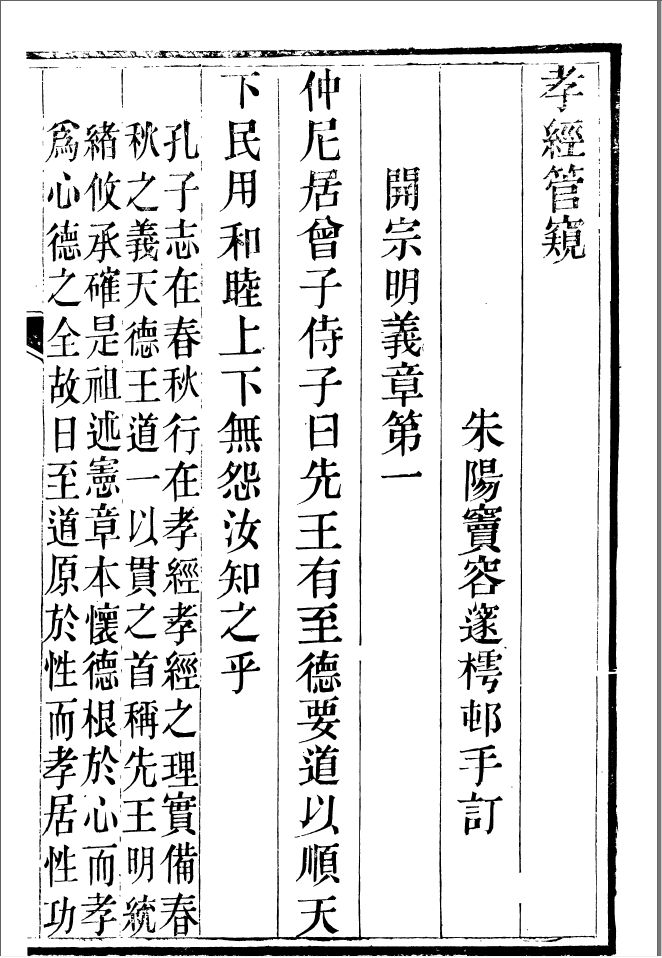 孝經管窺
朱陽竇容邃樗邨手訂
開宗明義章第一
仲尼居曾子侍子曰先王有至德要道以順天
下民用和睦上下無怨汝知之乎
孔子志在春秋行在孝經孝經之理實備春
秋之義天德王道一以貫之首稱先王明統
緒攸承確是祖述憲章本懷德根於心而孝
為心德之全故曰至道原於性而孝居性功